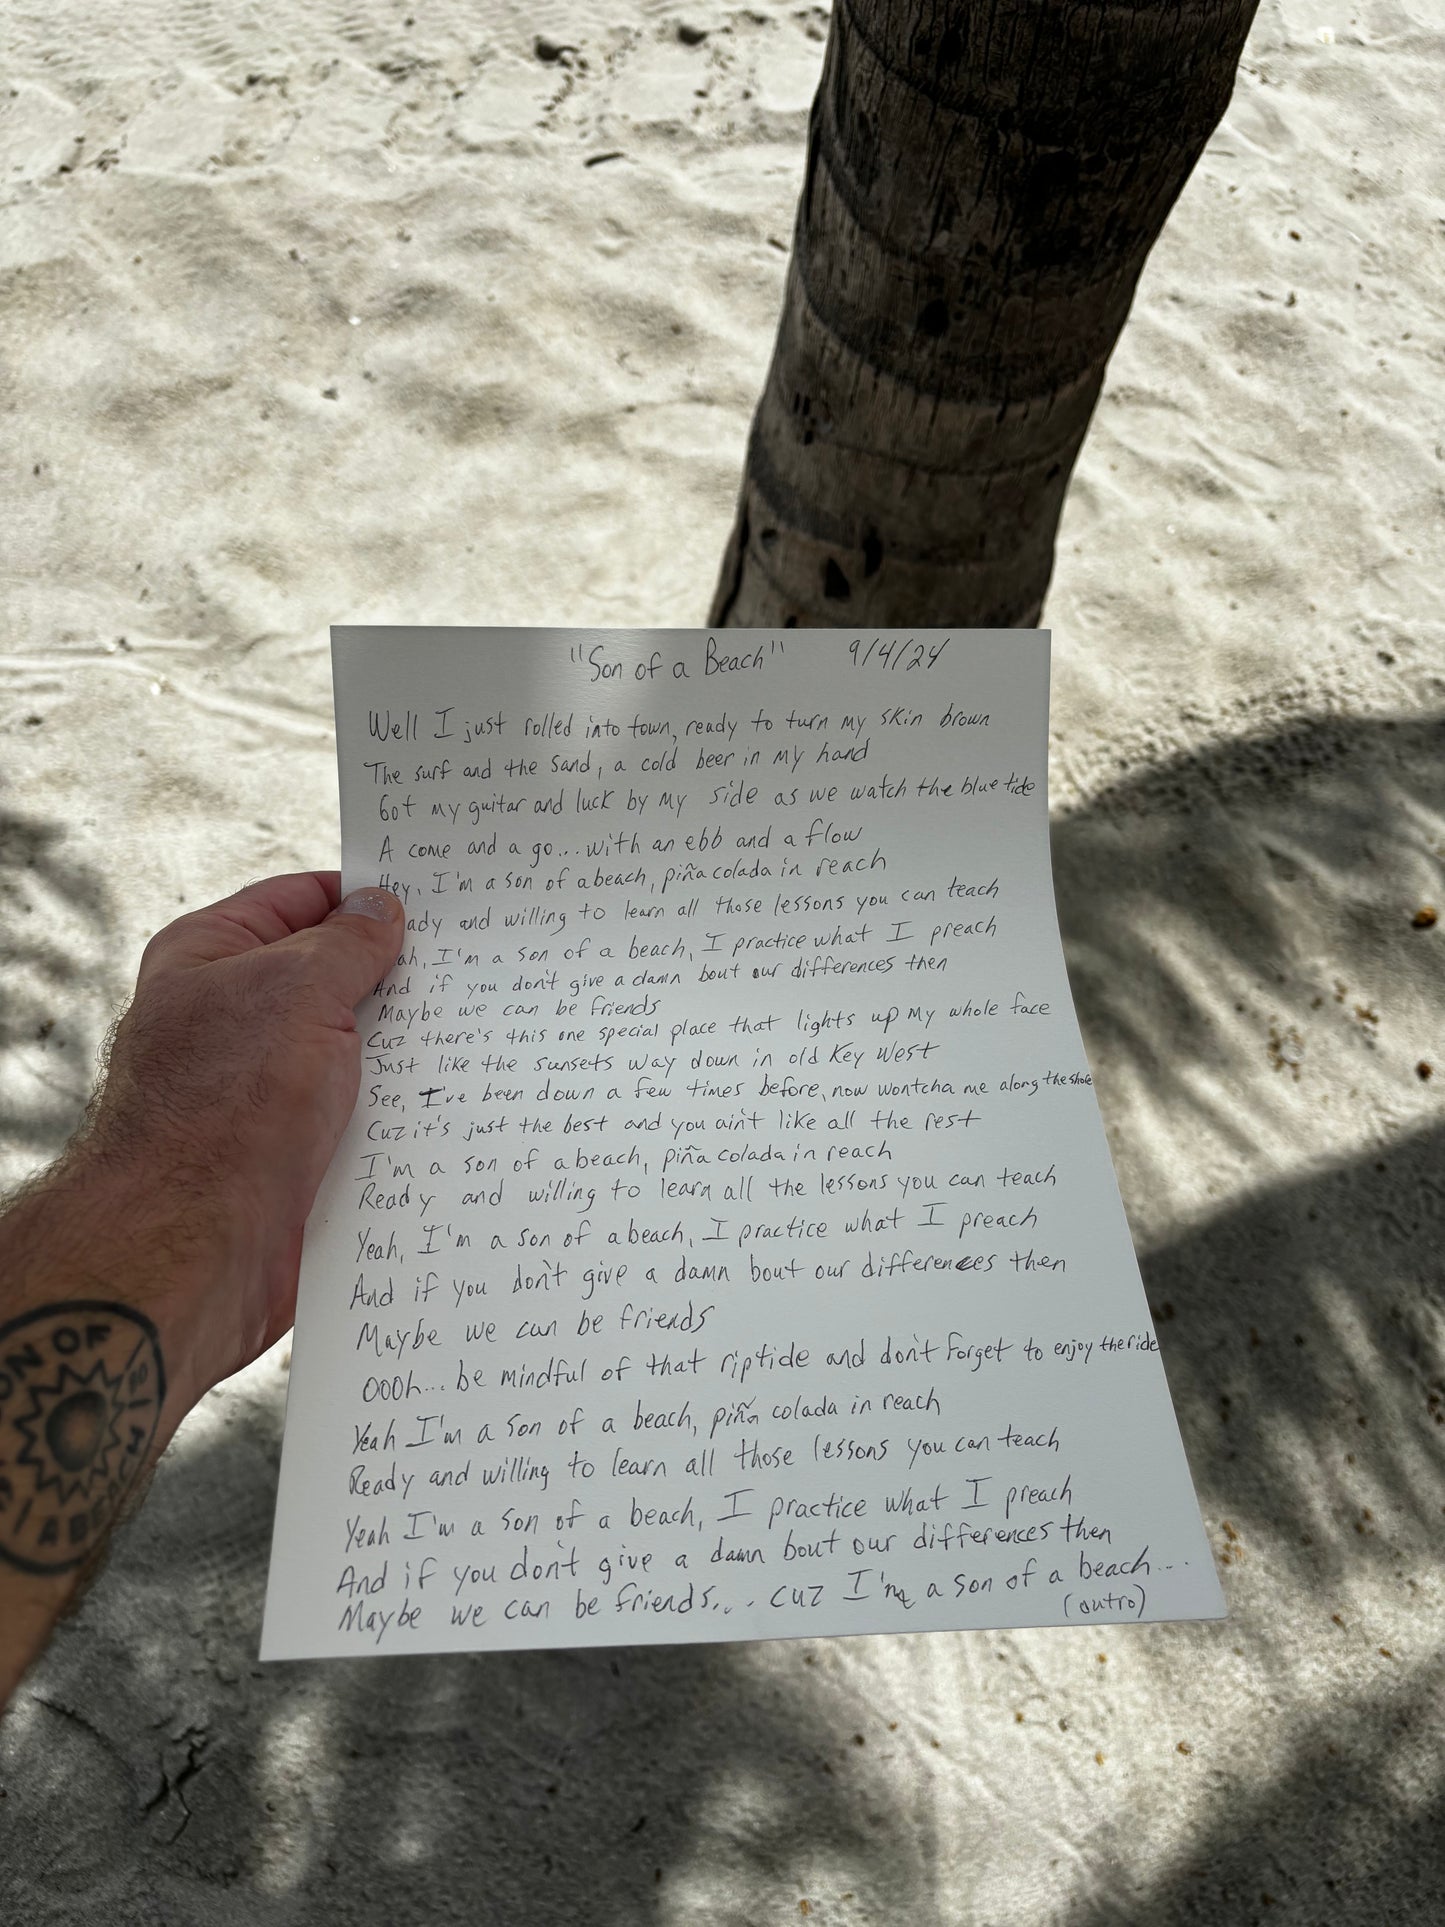 "Son of a Beach" 9/4/24
Well I just rolled into town, ready to turn my skin brown
The surf and the sand, a cold beer in my hand
Got my guitar and luck by my side as we watch the blue tide
A come and a go... with an ebb and a flow
Hey, I'm a son of a beach, piña colada in reach
ady and willing to learn all those lessons you can teach
ah, I'm a son of a beach, I practice what I preach
And if you don't give a damn bout our differences then
Maybe we can be friends
Cuz there's this one special place that lights up my whole face
Just like the sunsets way down in old Key West
See, I've been down a few times before, now wontcha me along the shore
Cuz it's just the best and you ain't like all the rest
I'm a son of a beach, piña colada in reach
Ready and willing to learn all the lessons you can teach
Yeah, I'm a son of a beach, I practice what I preach
And if you don't give a damn bout our differences then
Maybe we can be friends
Oooh... be mindful of that riptide and don't forget to enjoy the ride
Yeah I'm a son of a beach, piña colada in reach
Ready and willing to learn all those lessons you can teach
Yeah I'm a son of a beach, I practice what I preach
And if you don't give a damn bout our differences then
Maybe we can be friends... cuz I'm a son of a beach...
(outro)
ON OF